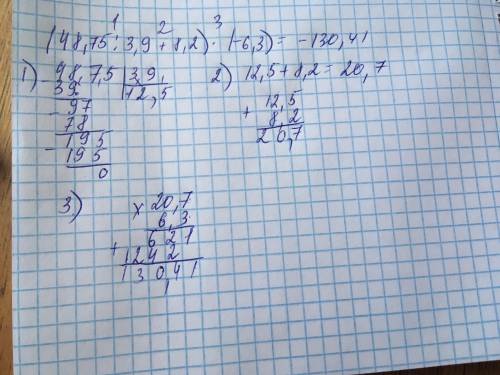 1 2 3
(48,75:3,9+8,2)·(-6,3)=-130,41
1) 48,7,5 | 3,9, 2) 12,5+8,2=20,7
39 12,5
- 97 + 12,5
78 8,2
- 195 20,7
195
0
3) × 20,7
6,3
+ 621
1242
130,41